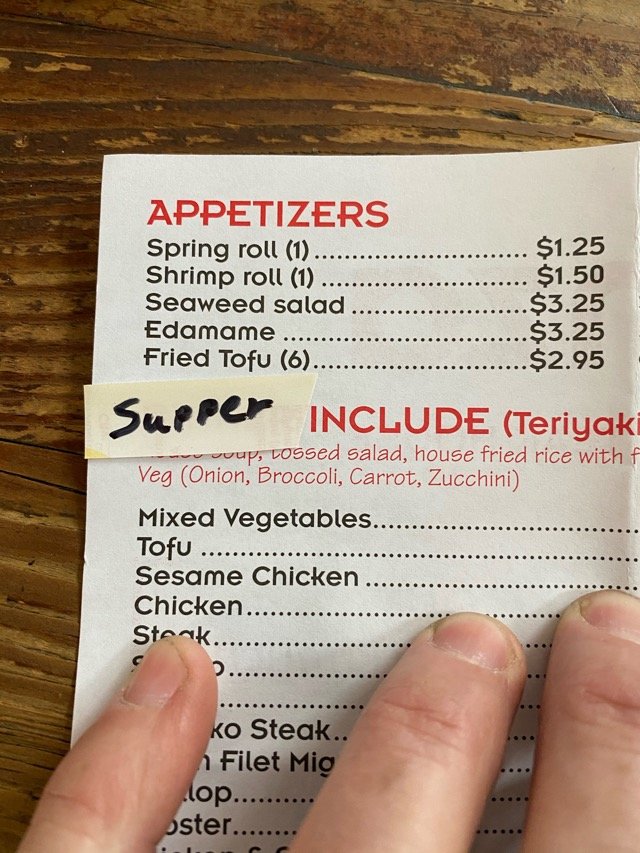 APPETIZERS
Spring roll (1) $1.25
Shrimp roll (1) $1.50
Seaweed salad $3.25
Edamame $3.25
Fried Tofu (6) $2.95
Supper INCLUDE (Teriyaki
soup, tossed salad, house fried rice with
Veg (Onion, Broccoli, Carrot, Zucchini)
Mixed Vegetables
Tofu
Sesame Chicken
Chicken
Steak
Steak
Filet